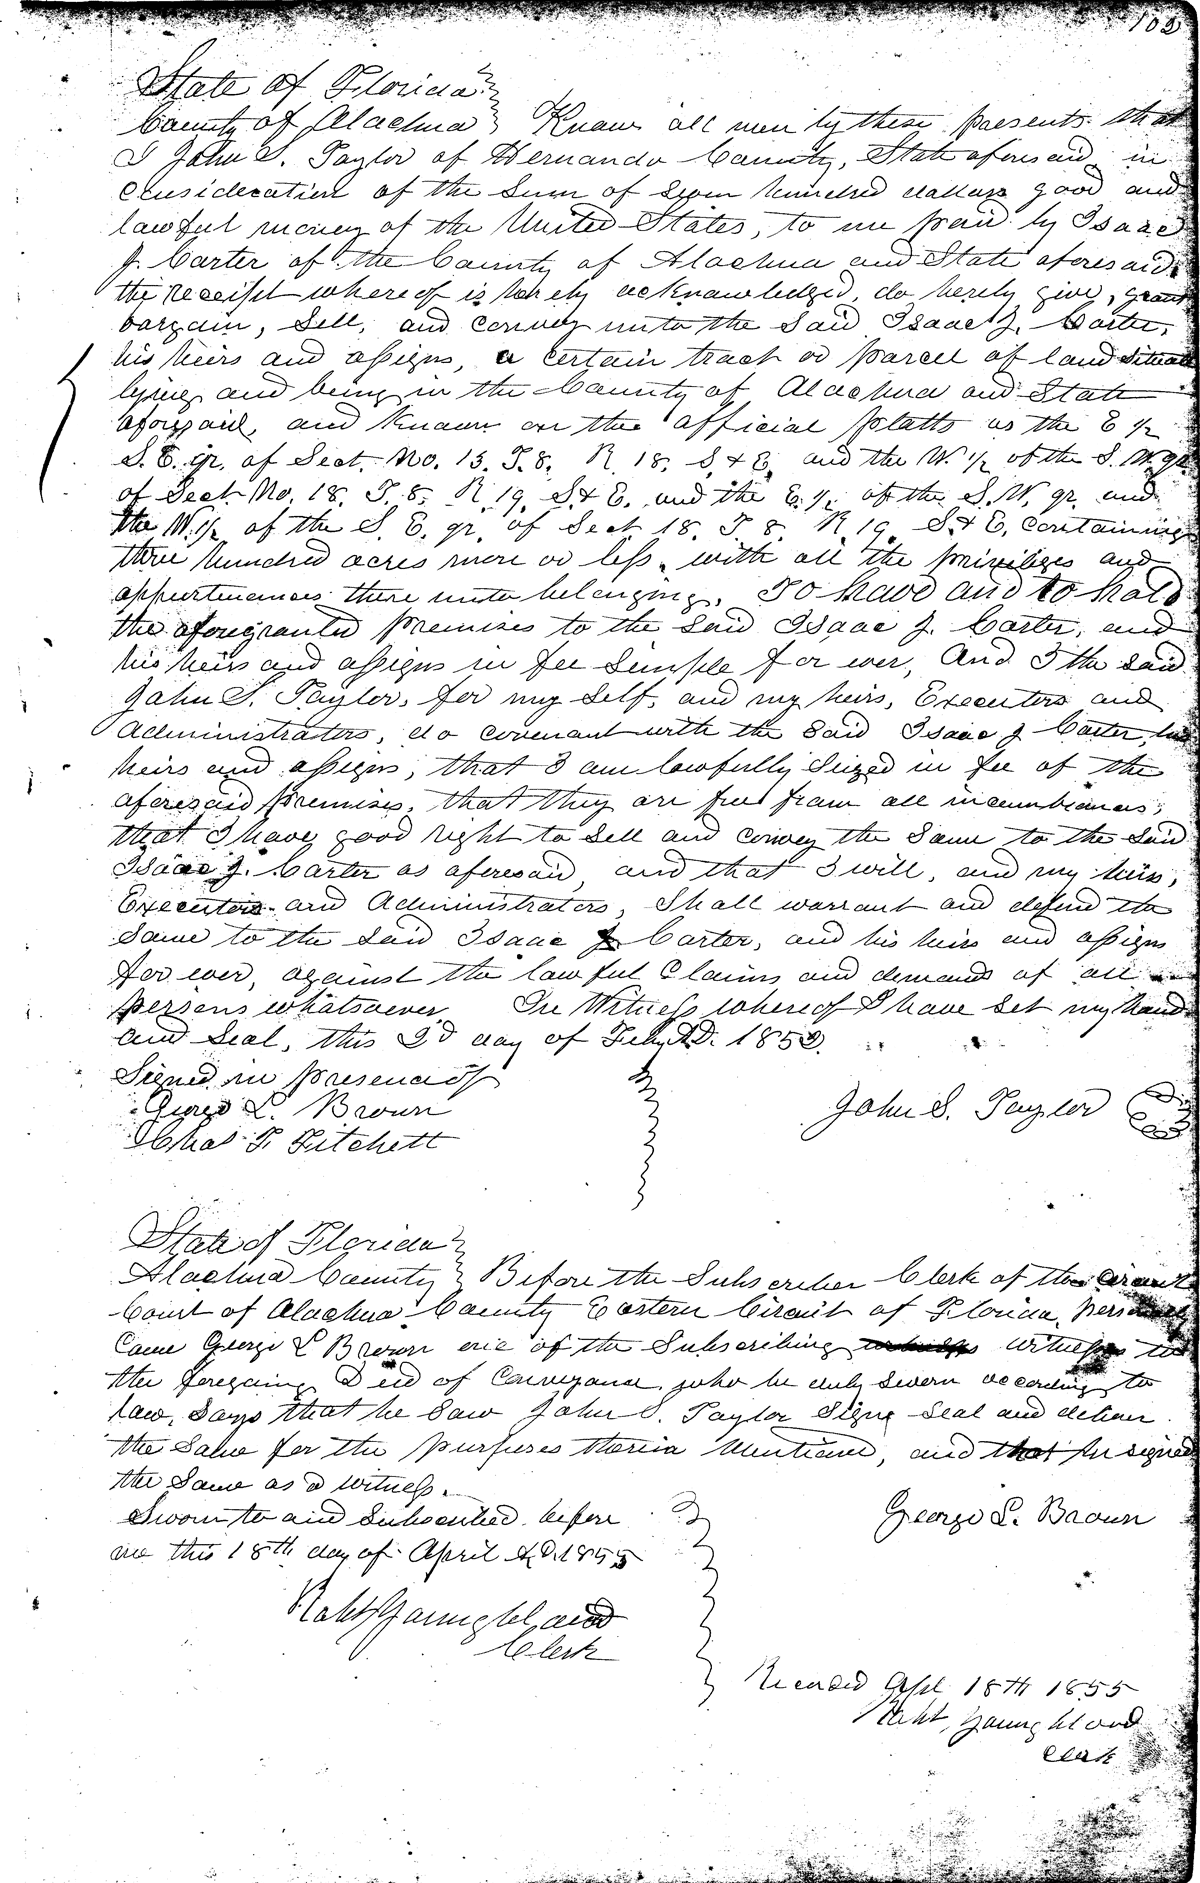 102
State of Florida
County of Alachua Know all men by these presents that
I John S. Taylor of Hernando County, State aforesaid in
consideration of the Sum of Seven hundred dollars good and
lawful money of the United States, to me paid by Isaac
J. Carter of the County of Alachua and State aforesaid
the receipt whereof is hereby acknowledged, do hereby give, grant
bargain, Sell, and convey unto the Said Isaac J. Carter,
his heirs and assigns, a certain tract or parcel of land situate
lying and being in the County of Alachua and State
aforesaid, and Known on the official platts as the E 1/2
S. E. qr. of Sect. No. 13. T. 8. R. 18. S. & E. and the W. 1/2 of the S. W. qr
of Sect No. 18. T. 8. R 19. S & E. and the E. 1/2 of the S. W. qr. and
the W. 1/2 of the S. E. qr. of Sect. 18. T. 8. R. 19. S. & E. containing
three hundred acres more or less, with all the privileges and
appurtenances there unto belonging. To have and to hold
the aforegranted premises to the Said Isaac J. Carter, and
his heirs and assigns in fee Simple for ever, And I the Said
John S. Taylor, for my Self, and my heirs, Executors and
Administrators, do covenant with the Said Isaac J Carter, his
heirs and assigns, that I am lawfully Seized in fee of the
aforesaid premises, that they are free from all incumbrances;
that I have good right to Sell and convey the Same to the Said
Isaac J. Carter as aforesaid, and that I will, and my heirs,
Executors and Administrators, Shall warrant and defend the
Same to the Said Isaac J Carter, and his heirs and assigns
for ever, against the lawful Claims and demands of all
persons whatsoever In Witness whereof I have Set my hand
and Seal, this 2d day of Feby A.D. 1852.
Signed in presence of
George L. Brown John S. Taylor
Chas F. Fitchett
State of Florida
Alachua County Before the Subscriber Clerk of the Circuit
Court of Alachua County Eastern Circuit of Florida, personally
Came George L Brown one of the Subscribing witness to
the foregoing Deed of Conveyance, who he duly Sworn according to
law, Says that he Saw John S. Taylor Sign Seal and deliver
the Same for the purposes therein Mentioned, and that he signed
the Same as a witness.
Sworn to and Subscribed before George L. Brown
me this 18th day of April A.D. 1855
Robt Youngblood
Clerk
Recorded Apl 18th 1855
Robt. Youngblood
Clerk